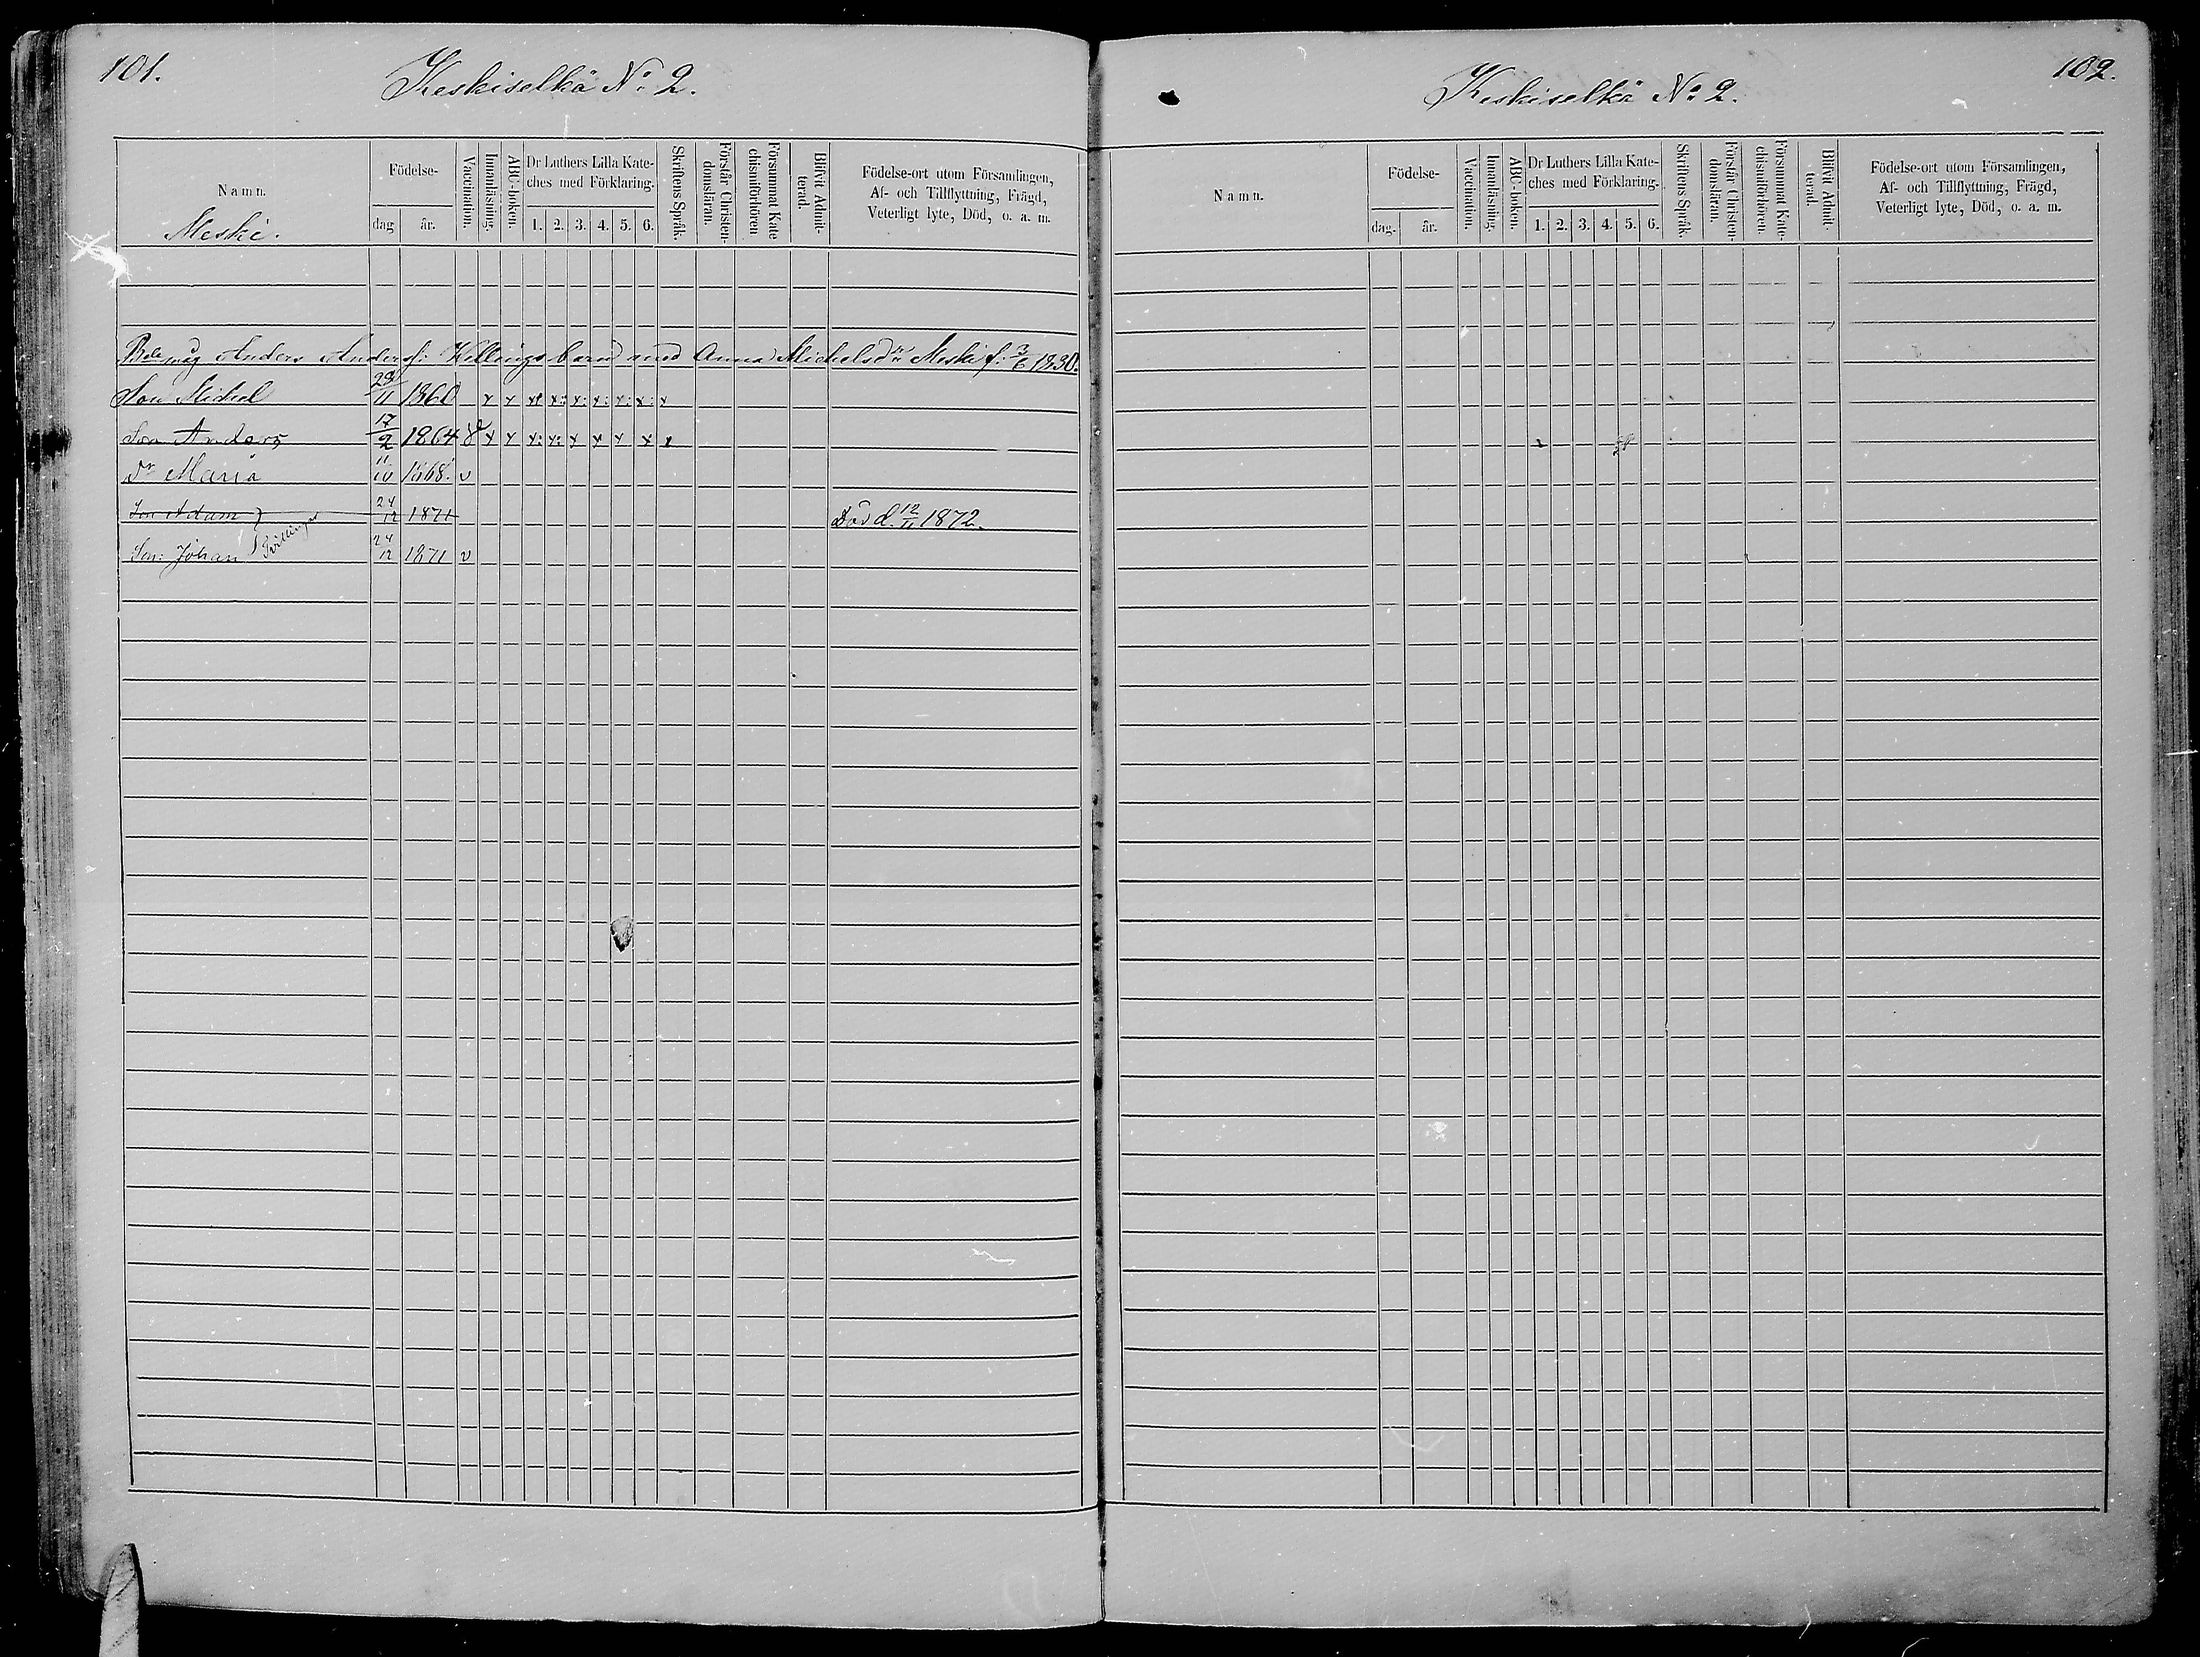 101.
Keskiselkä No: 2.
Namn.
Meski.
Födelse-
dag
år.
Vaccination.
Innanläsning.
ABC-boken.
Dr Luthers Lilla Kate-
ches med Förklaring.
1. 2. 3. 4. 5. 6.
Skriftens Språk.
Förstår Christen-
domsläran.
Försummat Kate
chismiförhören
Blifvit Admit-
terad.
Födelse-ort utom Församlingen,
Af- och Tillflyttning, Frägd,
Veterligt lyte, Död, o. a. m.
måg Anders Andersf: Kellings barn med Anna Michelsdr Meski f: 3/6 1830.
Son Michel 29/11 1860 x x x: x: x: x: x: x: x
Son Anders 17/2 1864 v x x x: x: x x x x x
Dr Maria 11/10 1868. v
Son Adam 24/12 1871 Död d. 12/11 1872.
Tvillingar
Son: Johan 24/12 1871 v
102.
Keskiselkä No: 2.
Namn.
Födelse-
dag.
år.
Vaccination.
Innanläsning.
ABC-boken.
Dr Luthers Lilla Kate-
ches med Förklaring.
1. 2. 3. 4. 5. 6.
Skriftens Språk.
Förstår Christen-
domsläran.
Försummat Kate-
chismiförhören.
Blifvit Admit-
terad.
Födelse-ort utom Församlingen,
Af- och Tillflyttning, Frägd,
Veterligt lyte, Död, o. a. m.